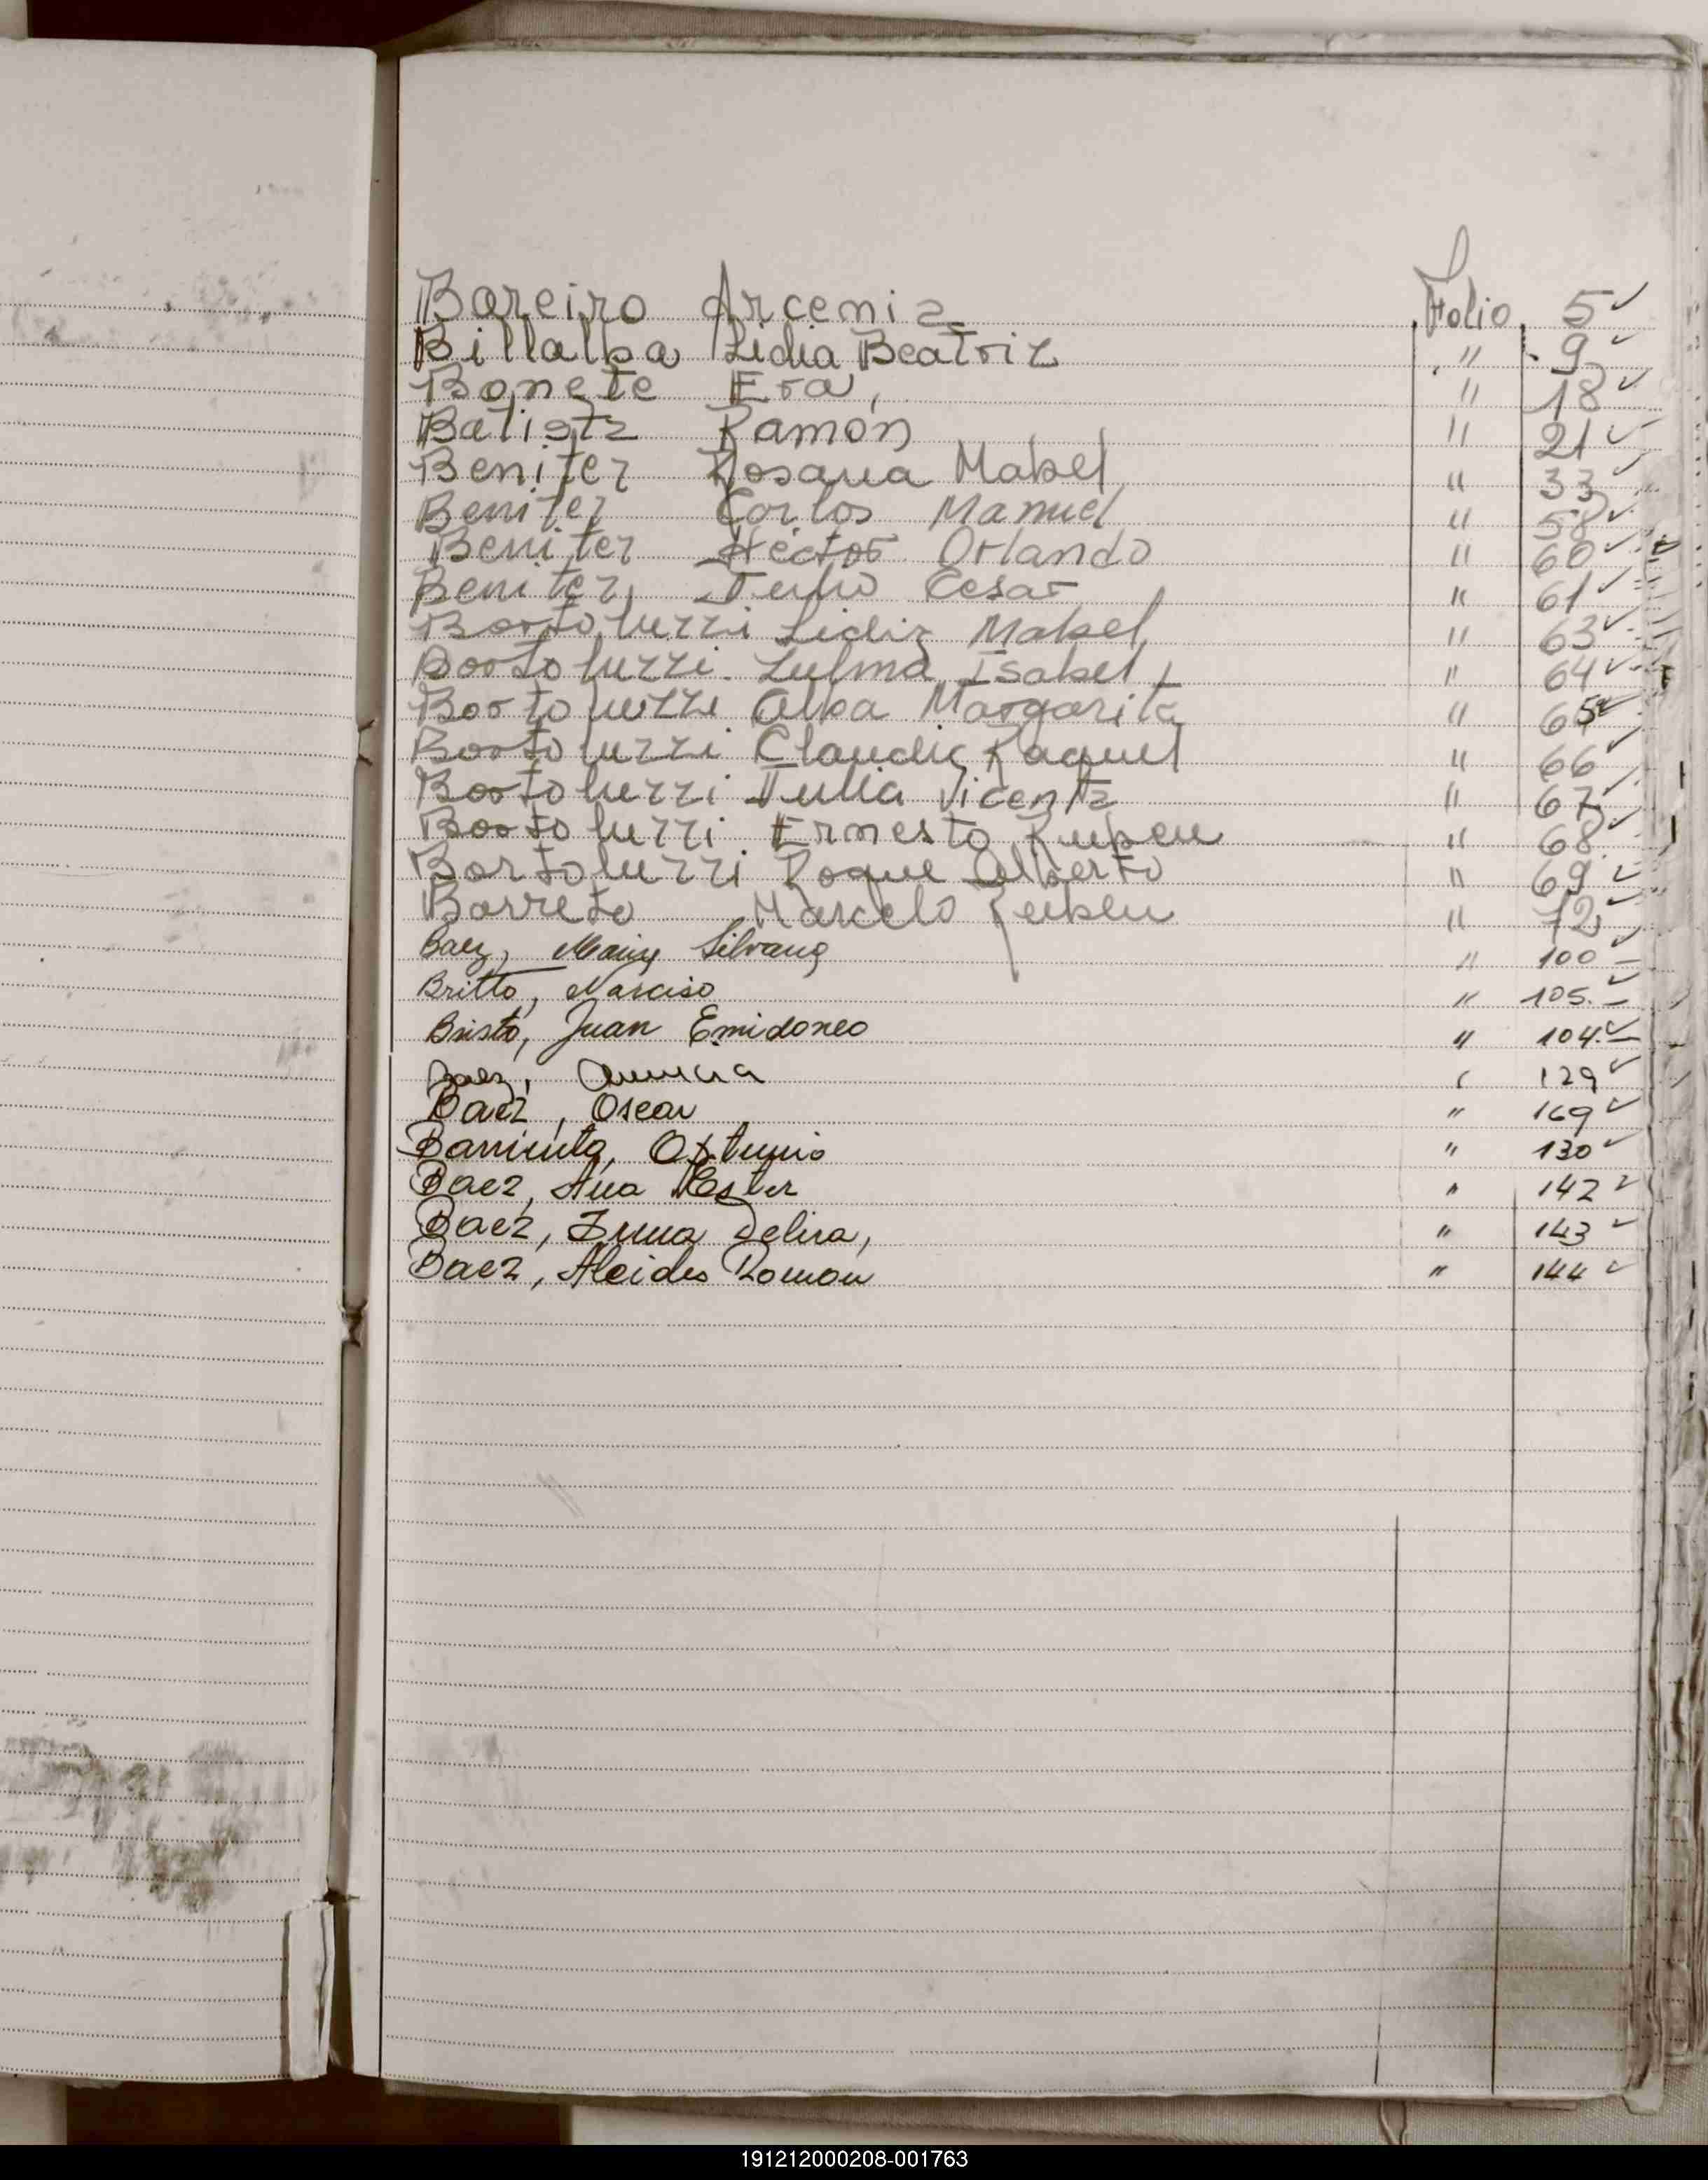 Bareiro Arcenia Folio 5 ✓
Billalba Lidia Beatriz " 9 ✓
Bonete Eva, " 18 ✓
Batista Ramón " 21 ✓
Benitez Rosana Mabel " 33 ✓
Benitez Carlos Manuel " 58 ✓
Benitez Héctor Orlando " 60 ✓
Benitez Julio Cesar " 61 ✓
Bortoluzzi Lidia Mabel " 63 ✓
Bortoluzzi Zulma Isabel " 64 ✓
Bortoluzzi Alba Margarita " 65 ✓
Bortoluzzi Claudia Raquel " 66 ✓
Bortoluzzi Julia Vicenta " 67 ✓
Bortoluzzi Ernesto Ruben " 68 ✓
Bortoluzzi Roque Alberto " 69 ✓
Barreto Marcelo Ruben " 72 ✓
Baez, Silvana " 100 ✓
Britto, Narciso " 105. ✓
Juan Emidoneo " 104. ✓
Baez, 129 ✓
Baez, Oscar " 169 ✓
" 130 ✓
Baez, Ana Ester " 142 ✓
Baez, Irma Delira, " 143 ✓
Baez, Alcides Roman " 144 ✓
191212000208-001763